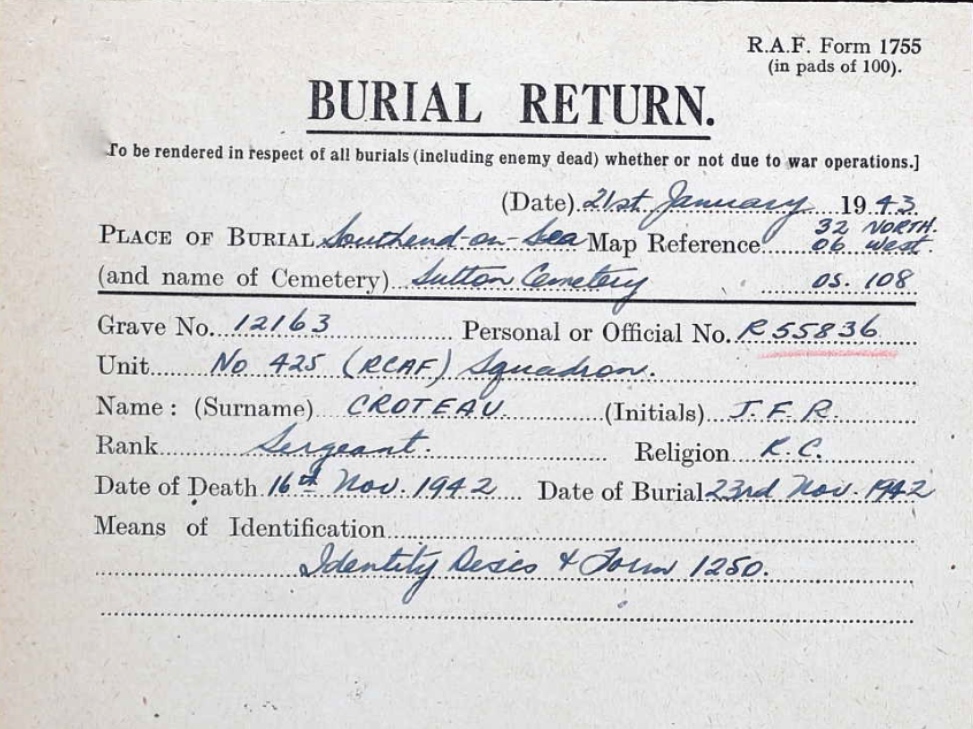 R.A.F. Form 1755
(in pads of 100).
BURIAL RETURN.
To be rendered in respect of all burials (including enemy dead) whether or not due to war operations.]
(Date) 21st January 1943.
PLACE OF BURIAL Southend-on-Sea Map Reference 32 NORTH. 06 West.
(and name of Cemetery) Sutton Cemetery 05. 108
Grave No. 12163 Personal or Official No. R55836
Unit No 425 (RCAF) Squadron.
Name: (Surname) CROTEAU (Initials) J.F.R.
Rank Sergeant. Religion R.C.
Date of Death 16th Nov. 1942 Date of Burial 23rd Nov. 1942
Means of Identification
Identity Discs & Form 1250.